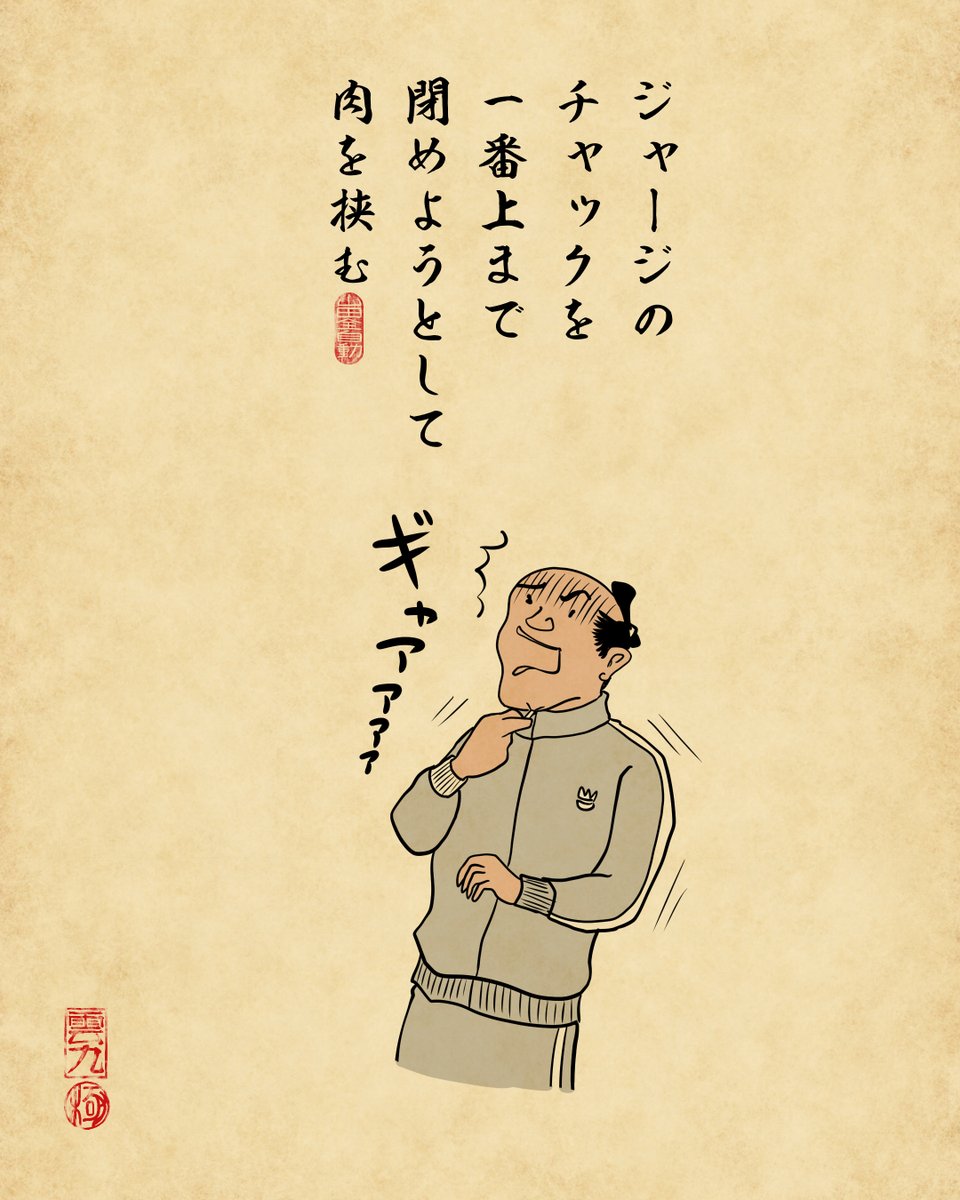 ジャージの
チャックを
一番上まで
閉めようとして
肉を挟む
ギャアアアア
雲九
極